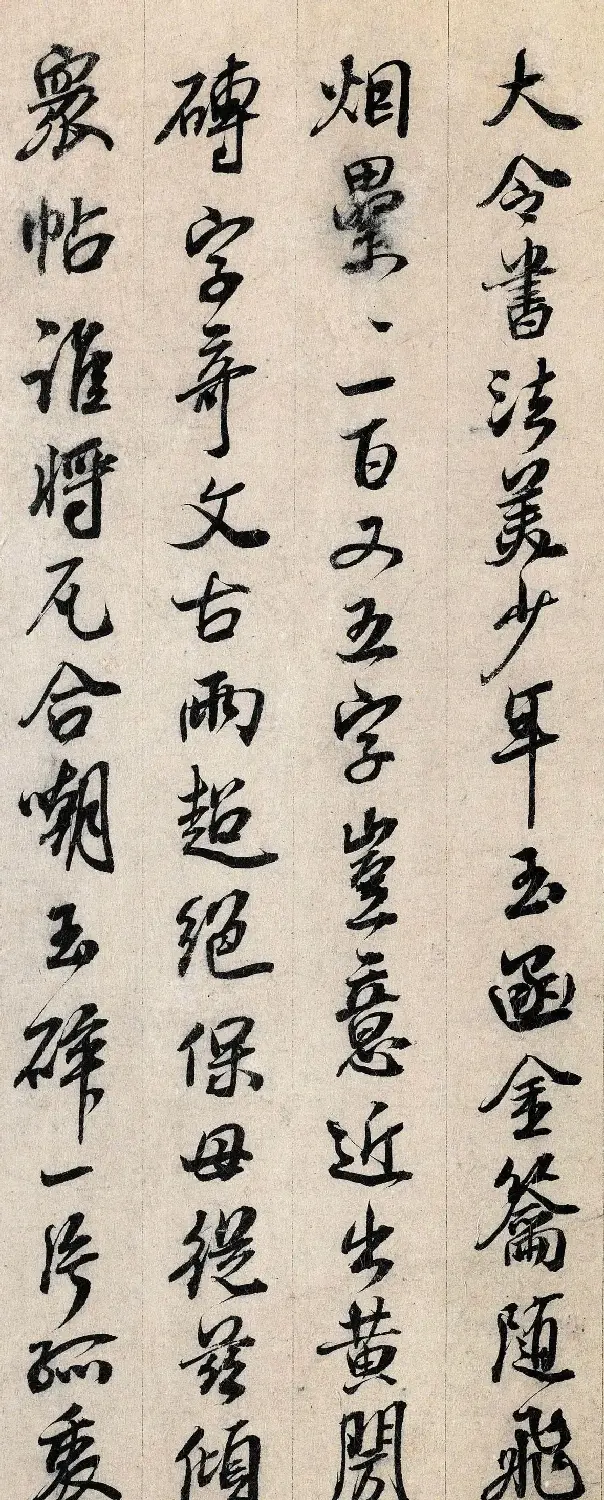 大令書法美少年玉函金鑰隨飛
烟纍々一百又五字豈意近出黃閍
磚字奇文古兩超絕保母從茲傾
衆帖誰將瓦合嘲玉碎一片孤